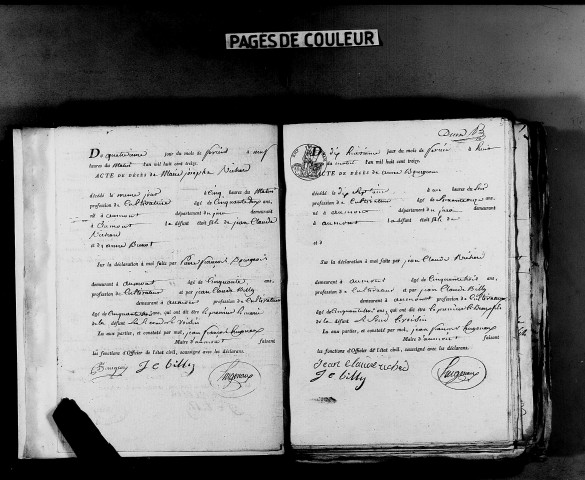 PAGES DE COULEUR
Du quatorzieme jour du mois de février à neuf
heures du matin l'an mil huit cent treize.
ACTE DE DÉCÈS de Marie josephe Richard
décédé le meme jour à cinq heures du matin
profession de Cultivatrice âgé de cinquante deux ans,
né à aumont département du jura demeurant
à aumont la défunt était fils de jean Claude
Richard
et de anne
Sur la déclaration à moi faite par Pierre françois Bourgeois
demeurant à aumont âgé de cinquante ans,
profession de Cultivateur et par jean Claude Billy
demeurant à aumont profession de Cultivateur
âgé de cinquante ans, qui ont dit être le premier le mari
de la défunt le second voisin
En aux parties, et constaté par moi, jean françois hugenaux
Maire d'aumont faisant
les fonctions d'Officier de l'état civil, soussigné avec les déclarans.
J C Billy
hugenaux
Du dix huitieme jour du mois de février à huit
heures du matin l'an mil huit cent treize.
ACTE DE DÉCÈS de anne Bourgeois
décédé le dix sept à heures du soir
profession de Cultivatrice âgé de ans,
né à aumont département du jura demeurant
à aumont la défunt était fils de
et de
Sur la déclaration à moi faite par jean Claude Richard
demeurant à aumont âgé de cinquante trois ans,
profession de Cultivateur et par jean Claude Billy
demeurant à aumont profession de Cultivateur
âgé de cinquante ans, qui ont dit être le premier le
de la défunt le second voisin
En aux parties, et constaté par moi, jean françois hugenaux
Maire d'aumont faisant
les fonctions d'Officier de l'état civil, soussigné avec les déclarans.
Jean Claude richard
J C Billy
hugenaux